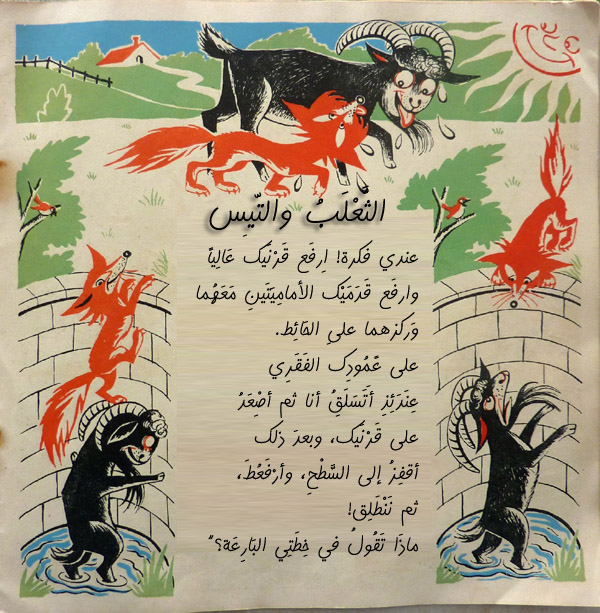 الثَّعْلَبُ والتَّيِسِ
عندي فكرة! اِرفَع قَرْنَيْك عَالِيًا
وارفَع قَدَمَيْك الأمامِيَتَينِ مَعَهُما
وَركزهما على الحَائِط.
على عَمُودِك الفَقَرِي
عِندَئِزِ أتَسَلَقُ أنا ثم أصْعَدُ
على قَرْنَيْك، وبعدَ ذلك
أقفِزُ إلى السَّطْحِ، وأرْفَعُطَ،
ثم نَنْطَلِق!
ماذَا تَقُولُ في خِطَتِي البَارِعَة؟"